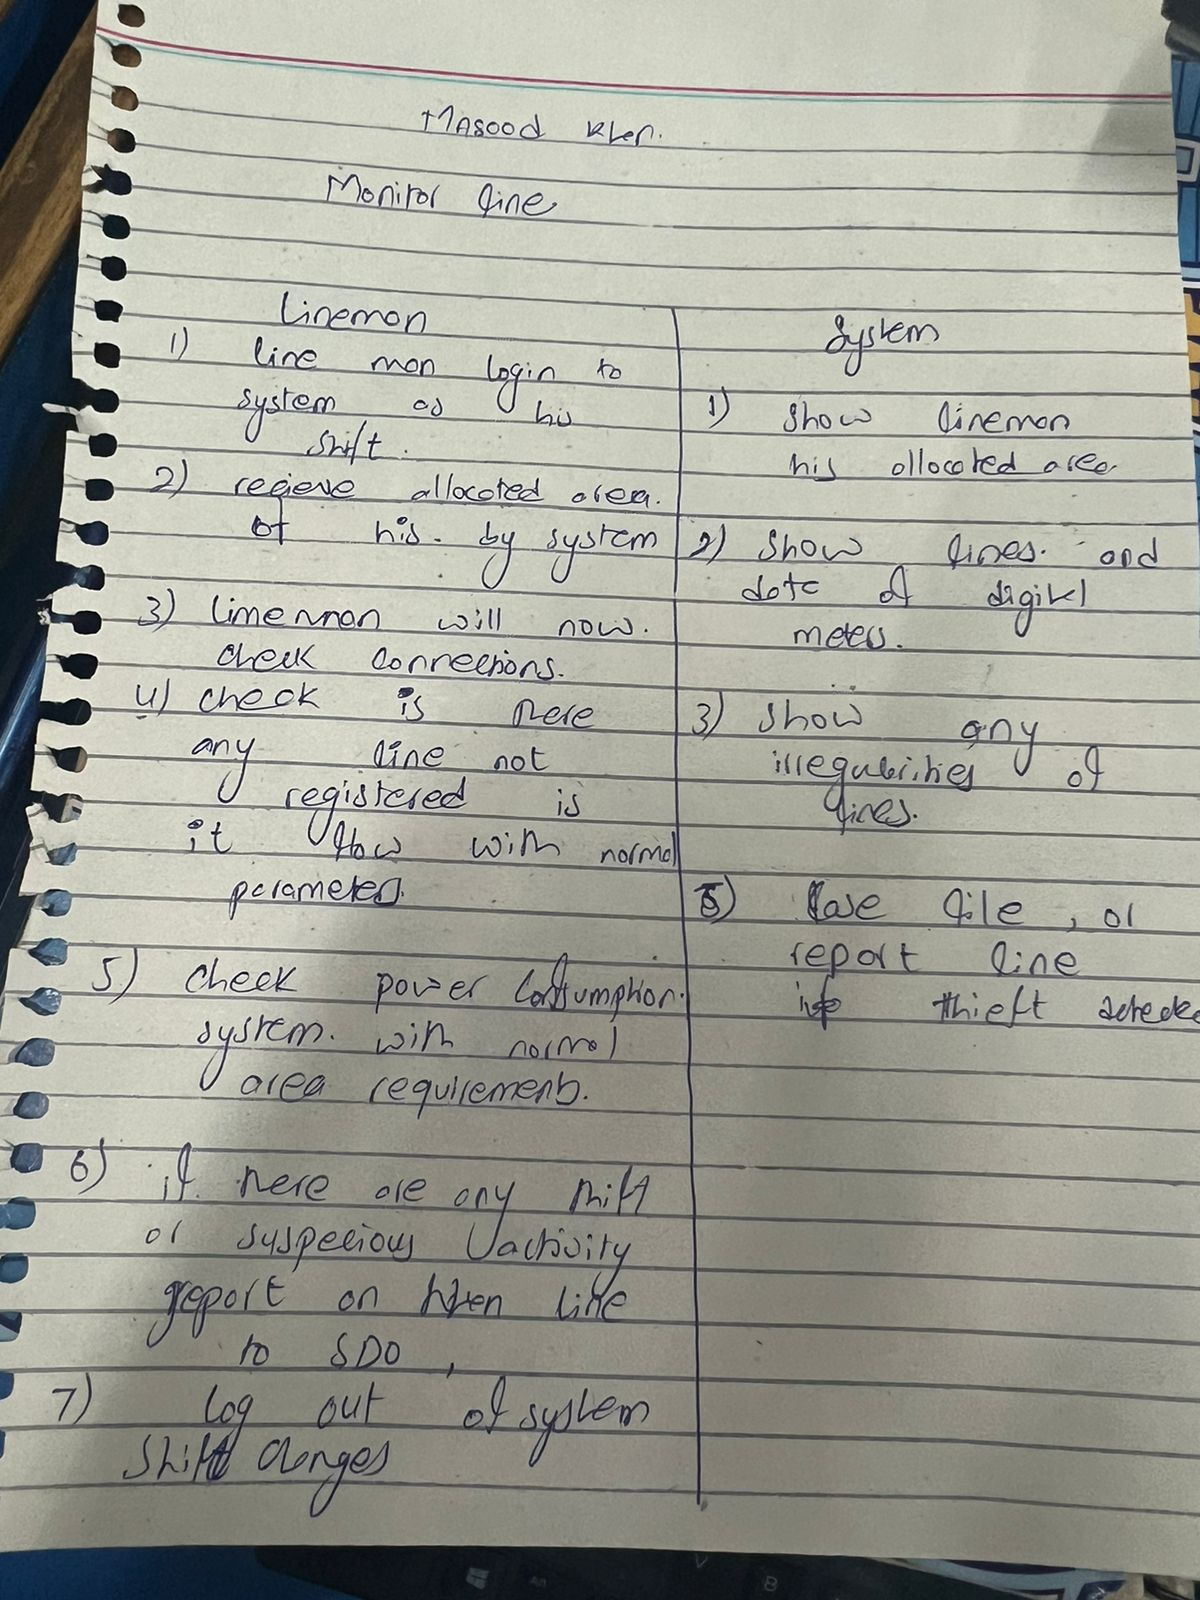 Masood Khan.
Monitor line
Linemon
1) line man login to
system as his
shift.
2) recieve allocated area.
of his. by system
3) limenman will now.
check connections.
4) check is there
any line not
registered is
it flow with normal
parameters.
5) check power consumption.
system. with normal
area requirements.
6) if there are any thift
or suspecious activity
report on then line
to SDO,
7) log out of system
shift changes
System
1) show lineman
his allocated area.
2) show lines. and
data of digital
meters.
3) show any
irregularities of
lines.
5) Case file, or
report line
if thieft detecte